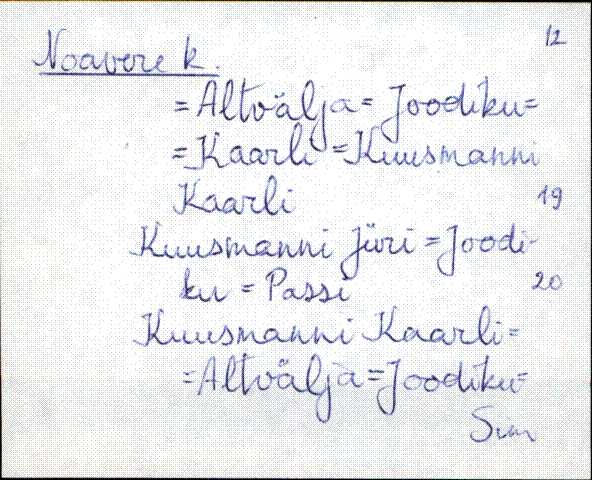 12
Noavere k.
= Altvälja = Joodiku =
= Kaarli = Kuusmanni
Kaarli 19
Kuusmanni Jüri = Joodi-
ku = Passi 20
Kuusmanni Kaarli =
= Altvälja = Joodiku =
Sim